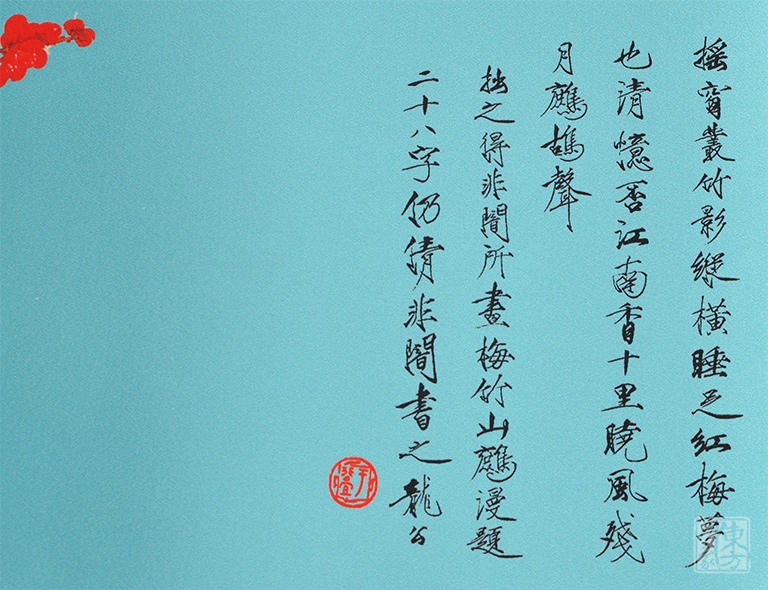 搖窗叢竹影縱橫睡足紅梅夢
也清憶否江南香十里曉風殘
月鷓鴣聲
拙之得非闇所畫梅竹山鷓漫題
二十八字仍倩非闇書之龍公
東方